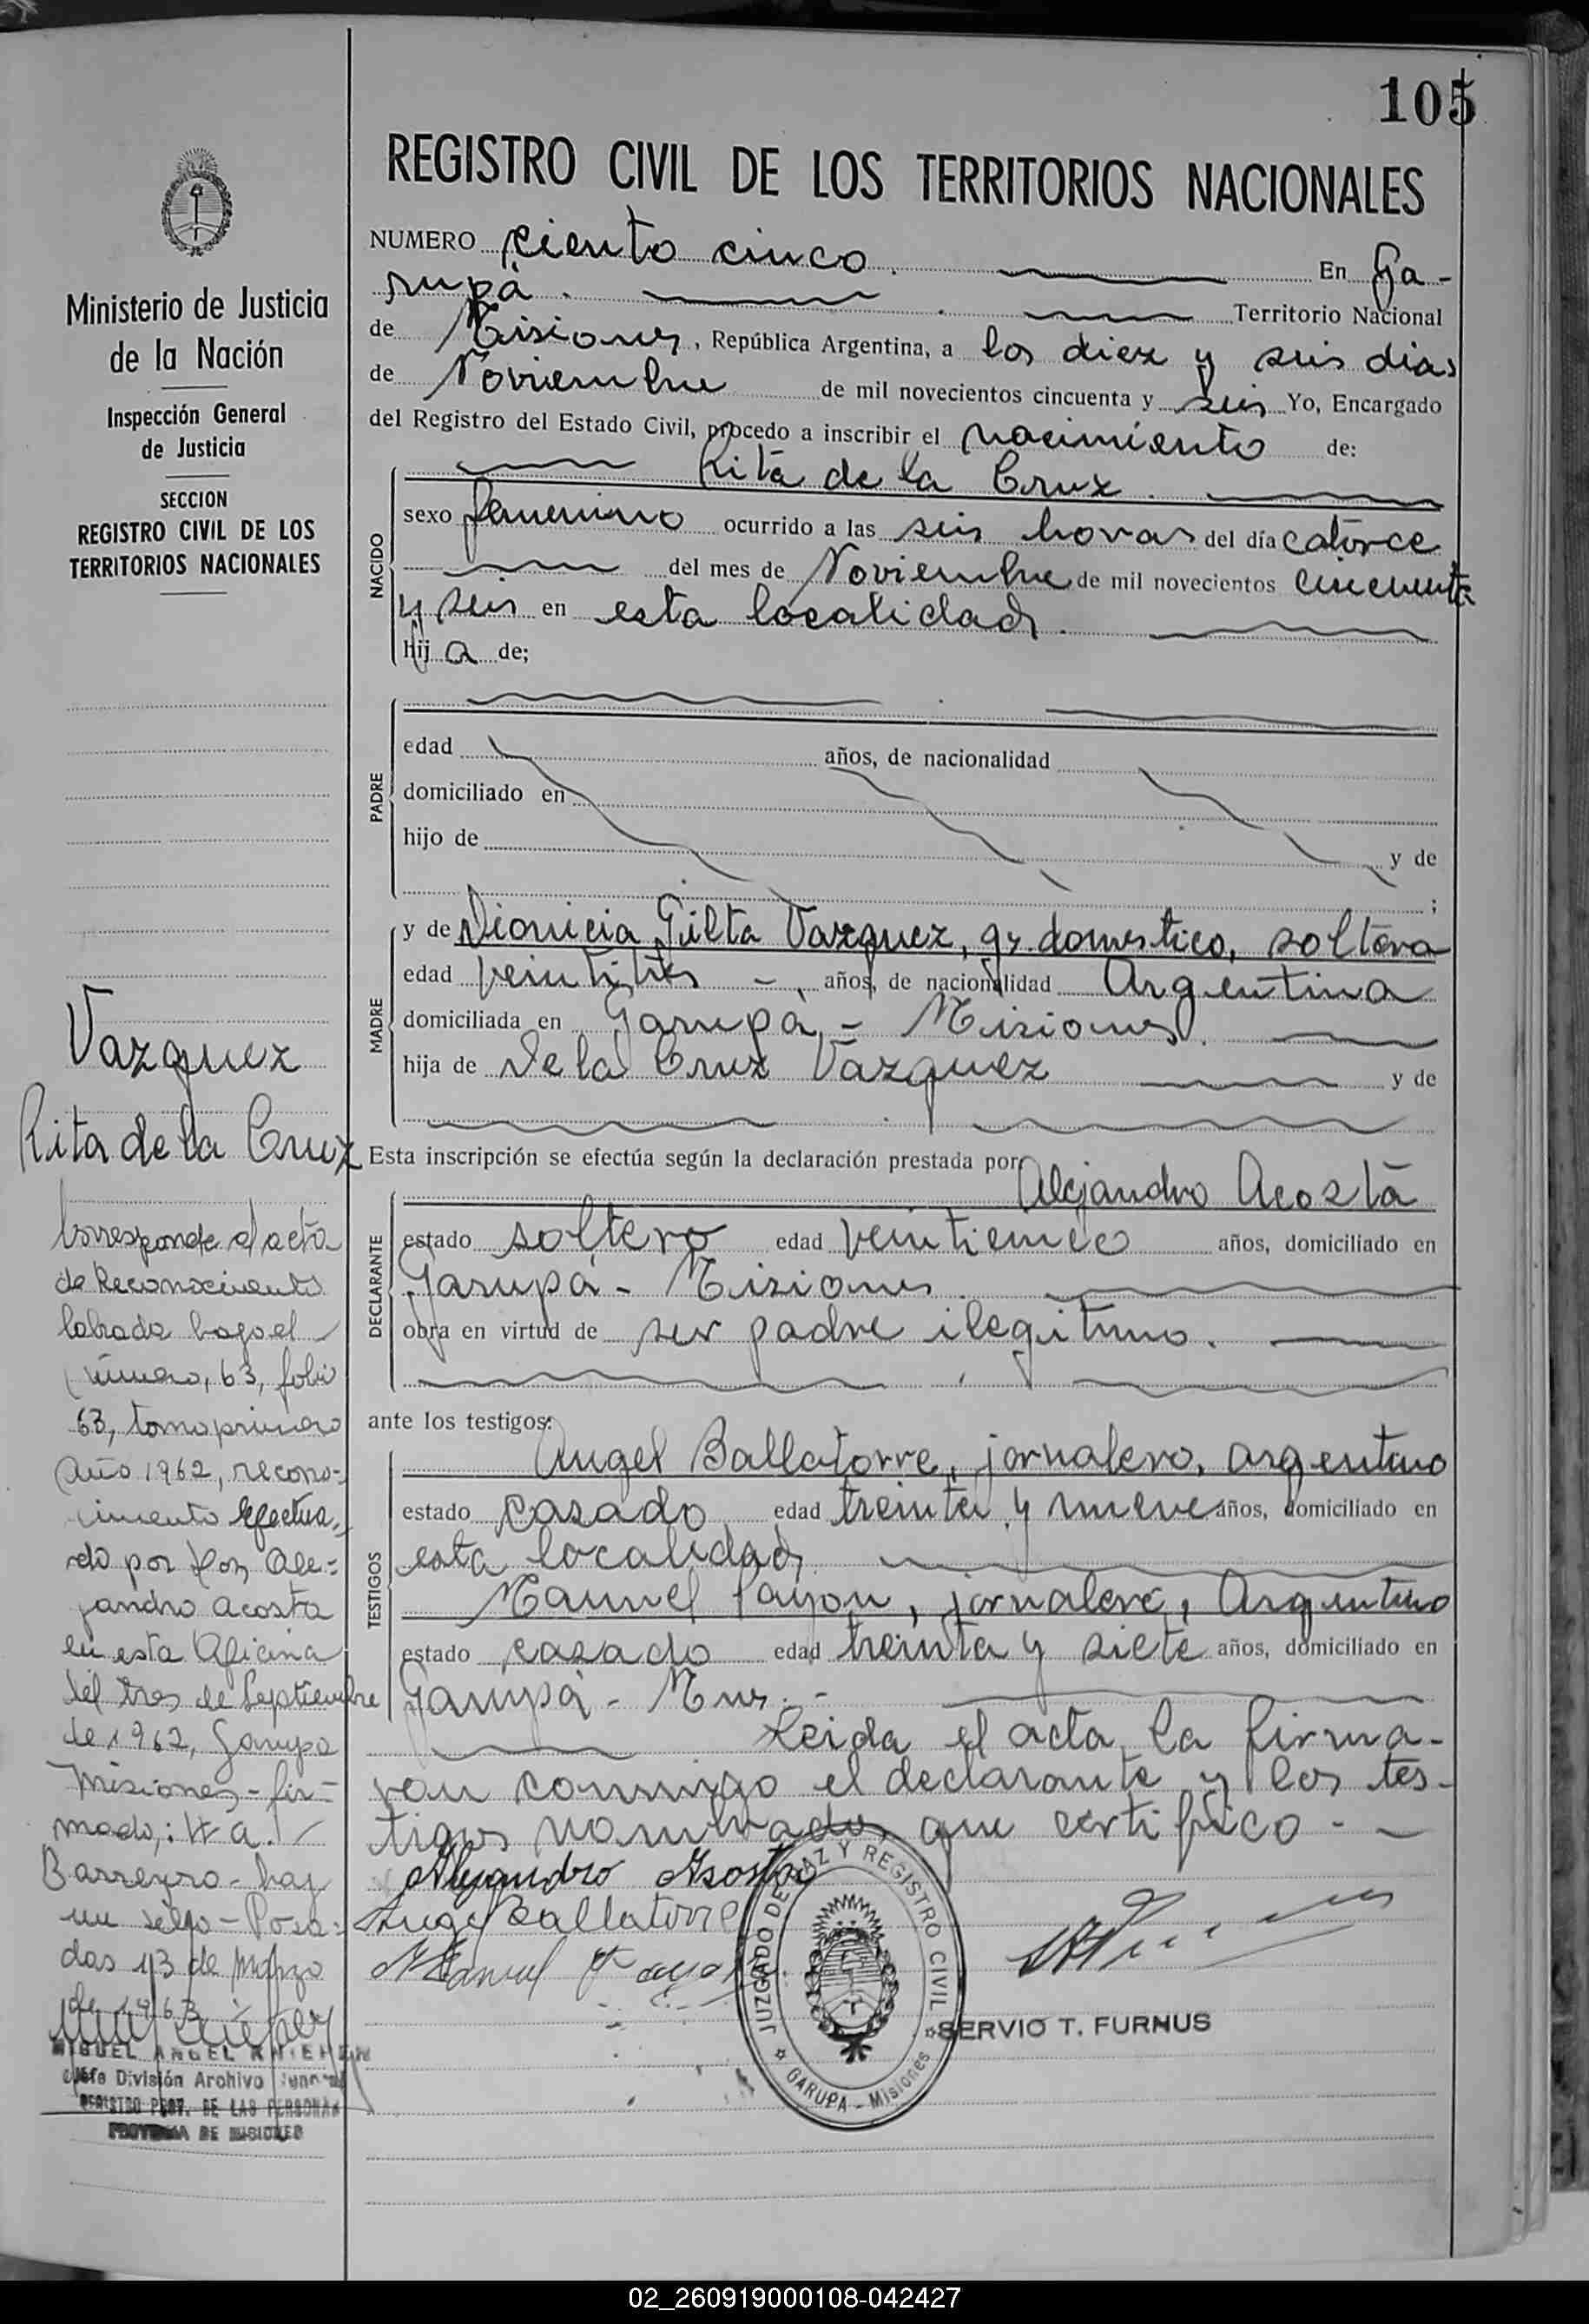 105
REGISTRO CIVIL DE LOS TERRITORIOS NACIONALES
NUMERO ciento cinco. En Ga-
rupá.
Territorio Nacional
de Misiones, República Argentina, a los diez y seis dias
de Noviembre de mil novecientos cincuenta y seis Yo, Encargado
del Registro del Estado Civil, procedo a inscribir el nacimiento de:
NACIDO
Rita de la Cruz.
sexo femenino ocurrido a las seis horas del día catorce
del mes de Noviembre de mil novecientos cincuenta
y seis en esta localidad.
hija de;
PADRE
edad años, de nacionalidad
domiciliado en
hijo de y de
;
MADRE
y de Dionicia Vazquez, qs. domestico, soltera
edad veintitres años, de nacionalidad Argentina
domiciliada en Garupá - Misiones.
hija de De la Cruz Vazquez y de
Esta inscripción se efectúa según la declaración prestada por
DECLARANTE
Alejandro Acosta
estado soltero edad veinticinco años, domiciliado en
Garupá - Misiones.
obra en virtud de ser padre ilegitimo.
ante los testigos:
TESTIGOS
Angel Ballatorre, jornalero, argentino
estado casado edad treinta y nueve años, domiciliado en
esta localidad,
Manuel, jornalero, Argentino
estado casado edad treinta y siete años, domiciliado en
Garupá - Mnes. -
Leida el acta, la firma-
ron conmigo el declarante y los tes-
tigos nombrados, que certifico. -
Alejandro Acosta
Angel Ballatorre
Manuel
JUZGADO DE PAZ Y REGISTRO CIVIL
GARUPA - Misiones
SERVIO T. FURNUS
Ministerio de Justicia
de la Nación
Inspección General
de Justicia
SECCION
REGISTRO CIVIL DE LOS
TERRITORIOS NACIONALES
Vazquez
Rita de la Cruz
Corresponde al acta
de Reconocimiento
labrada bajo el
número, 63, folio
63, tomo primero
año 1962, recono-
cimiento efectua-
do por Don Ale-
jandro Acosta
en esta Oficina
del tres de Septiembre
de 1962, Garupa
Misiones - fir-
mado,: H a.
Barreyro - hay
un sello - Posa-
das 13 de marzo
de 1963
MIGUEL ANGEL
Jefe División Archivo General
REGISTRO PROV. DE LAS PERSONAS
PROVINCIA DE MISIONES
02_260919000108-042427